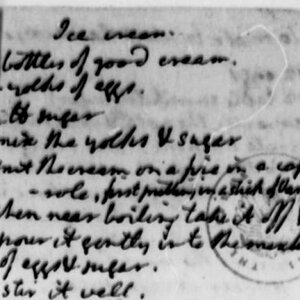 Ice cream.
bottles of good cream.
yolks of eggs.
lb sugar
mix the yolks & sugar
put the cream on a fire in a cas
-role, first putting in a stick of Van
when near boiling take it off &
pour it gently into the
of eggs & sugar.
stir it well.